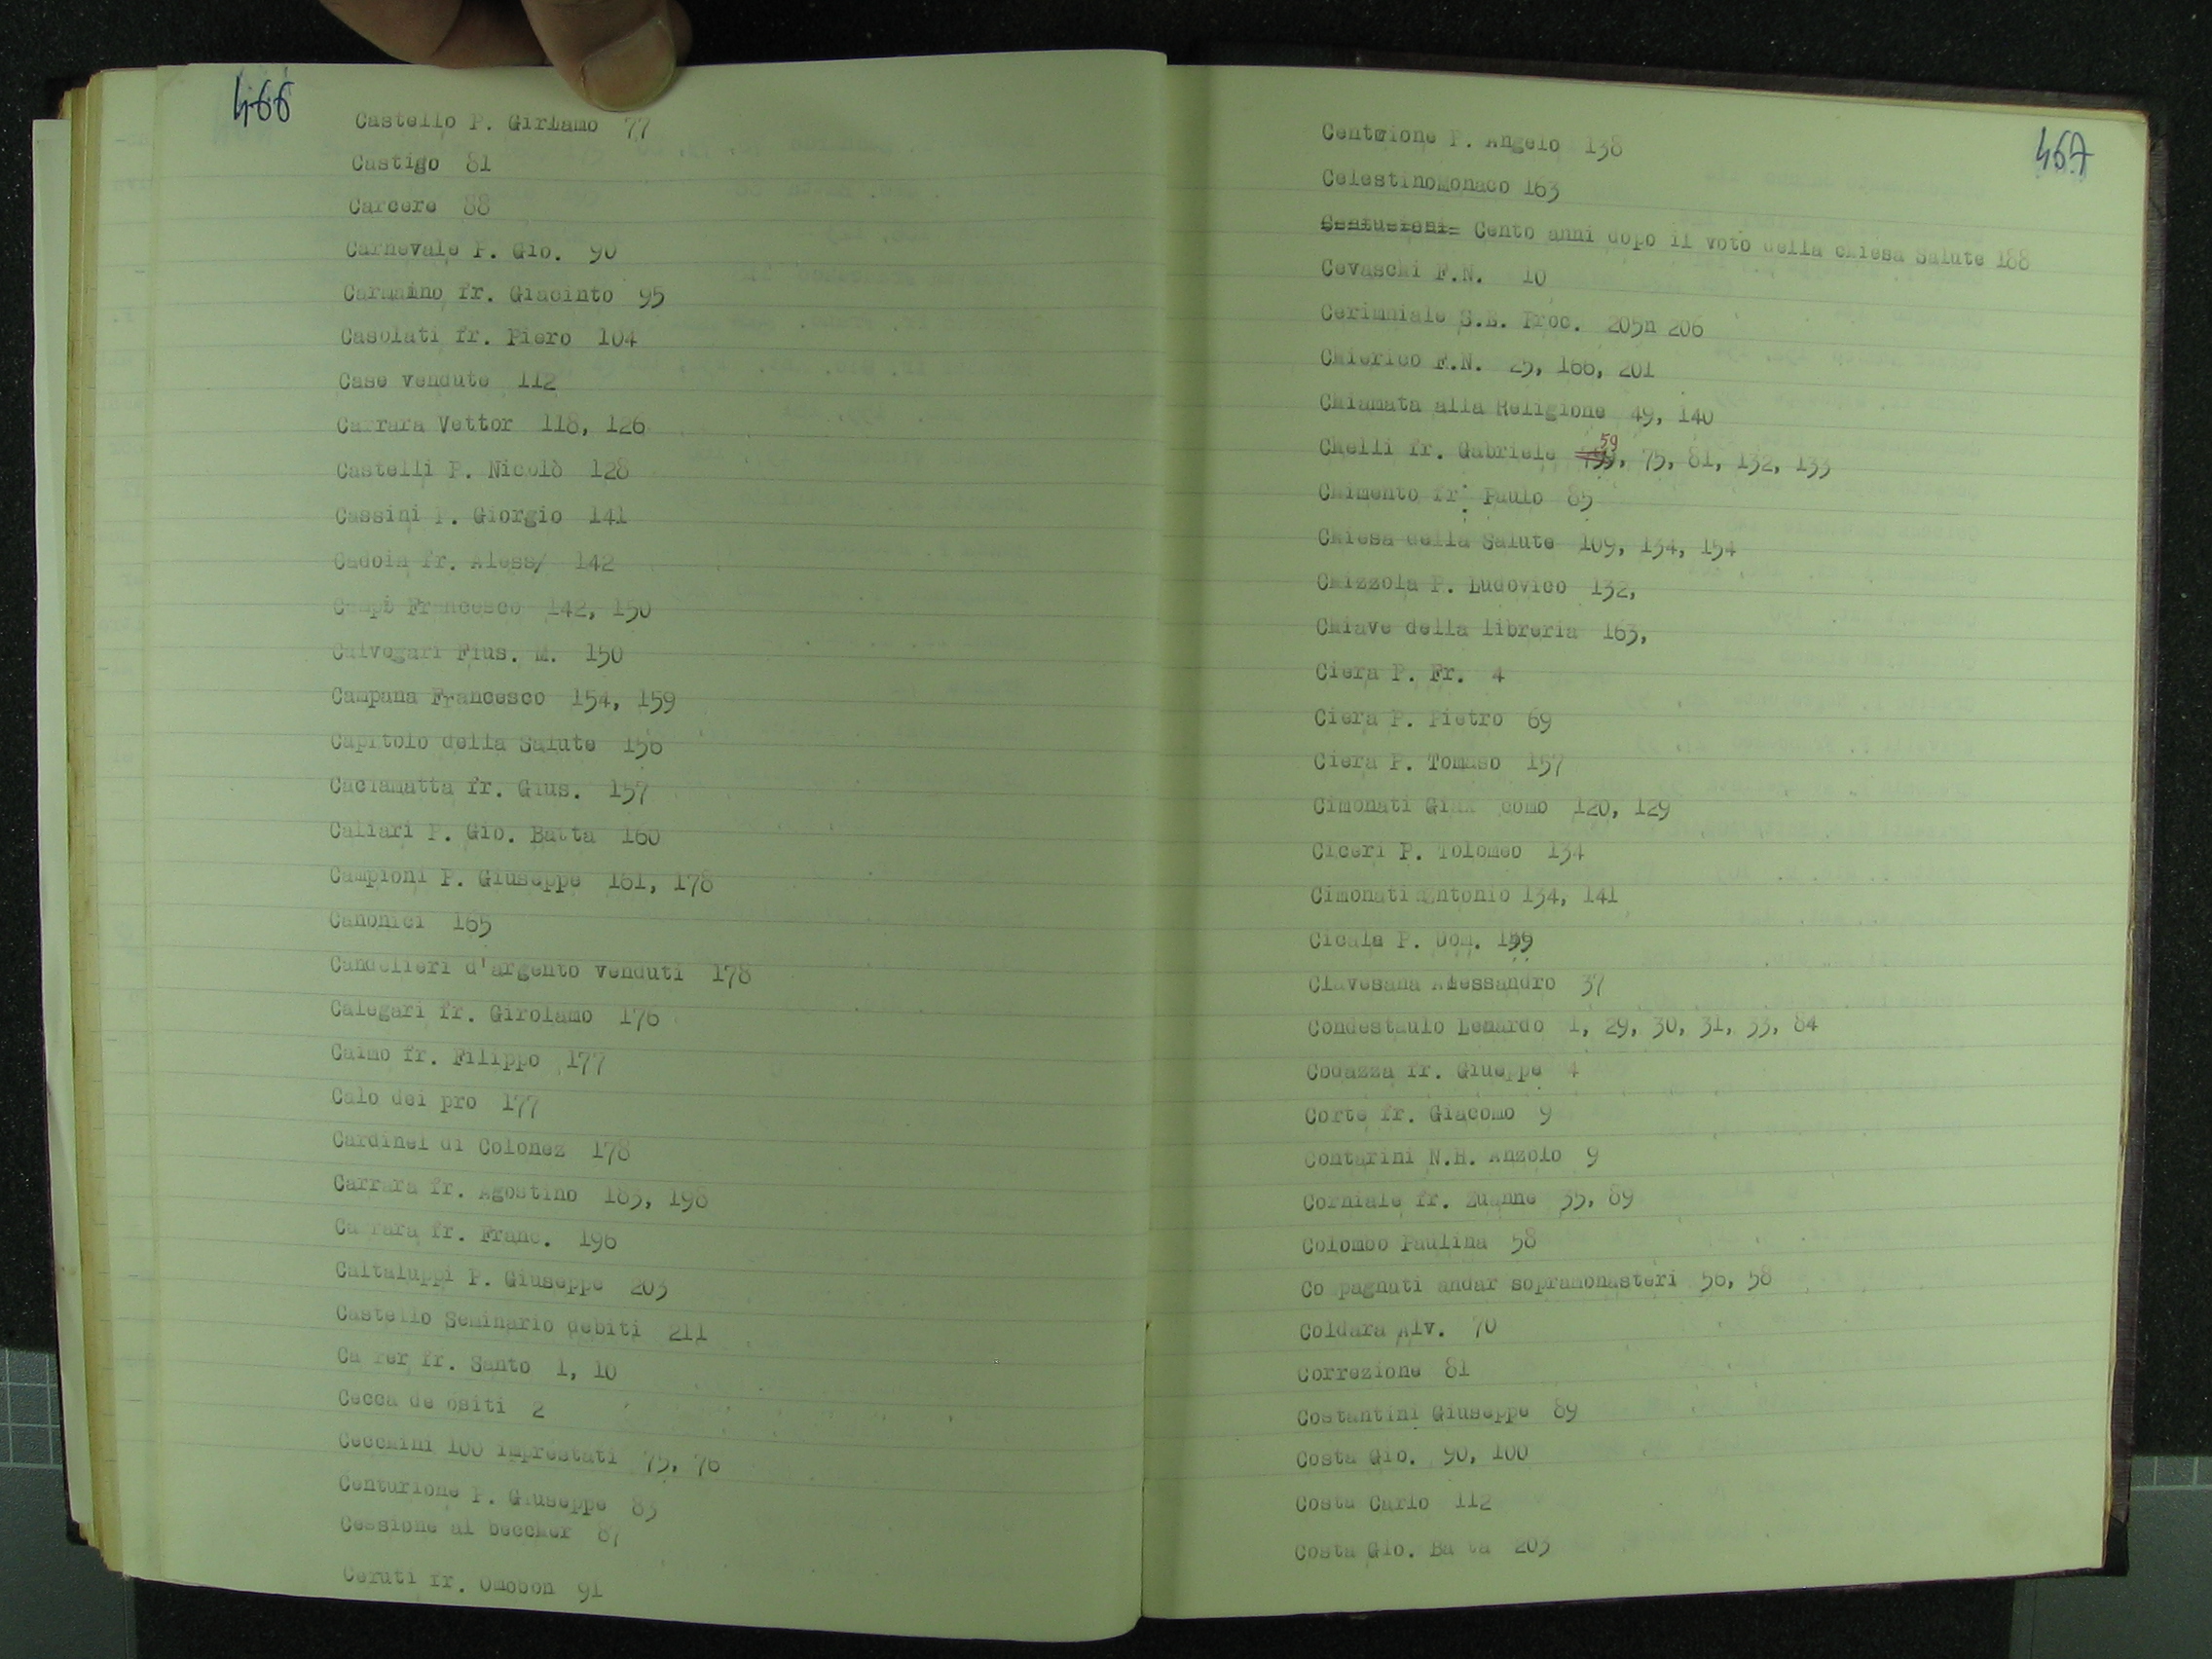 466
Castello P. Girlamo 77
Castigo 81
Carcere 88
Carnevale P. Gio. 90
Carmaino fr. Giacinto 95
Casolati fr. Piero 104
Case vendute 112
Carrara Vettor 118, 126
Castelli P. Nicolò 128
Cassini P. Giorgio 141
Cadoia fr. Aless/ 142
Campi Francesco 142, 150
Calvogari Fius. M. 150
Campana Francesco 154, 159
Capitolo della Salute 156
Caciamatta fr. Gius. 157
Caliari P. Gio. Batta 160
Campioni P. Giuseppe 161, 178
Canonici 165
Candelieri d'argento venduti 178
Calegari fr. Girolamo 176
Calmo fr. Filippo 177
Calo dei pro 177
Cardinel di Colonez 178
Carrara fr. Agostino 183, 198
Carrara fr. Franc. 196
Caltaluppi P. Giuseppe 203
Castello Seminario debiti 211
Ca rer fr. Santo 1, 10
Cecca de ositi 2
Cecchini 100 imprestati 75, 76
Centurione P. Giuseppe 83
Cessione al beccher 87
Ceruti fr. Omobon 91
467
Centrione P. Angelo 138
CelestinoMonaco 163
Cento anni dopo il voto della chiesa Salute 188
Cevaschi F.N. 10
Cerimniale S.E. Proc. 205n 206
Chierico F.N. 25, 166, 201
Chiamata alla Religione 49, 140
Chelli fr. Gabriele 59, 75, 81, 132, 133
Chimento fr: Paulo 85
Chiesa della Salute 109, 134, 154
Chizzola P. Ludovico 132,
Chiave della libreria 163,
Ciera P. Fr. 4
Ciera P. Pietro 69
Ciera P. Tomaso 157
Cimonati Gia como 120, 129
Ciceri P. Tolomeo 134
Cimonati Antonio 134, 141
Cicala P. Dom. 159
Clavesana Alessandro 37
Condestaulo Lenardo 1, 29, 30, 31, 33, 84
Codazza fr. Giueppe 4
Corte fr. Giacomo 9
Contarini N.H. Anzolo 9
Corniale fr. Zuanne 35, 89
Colombo Paulina 58
Co pagnati andar sopramonasteri 56, 58
Coldara Alv. 70
Correzione 81
Costantini Giuseppe 89
Costa Gio. 90, 100
Costa Carlo 112
Costa Gio. Ba ta 203